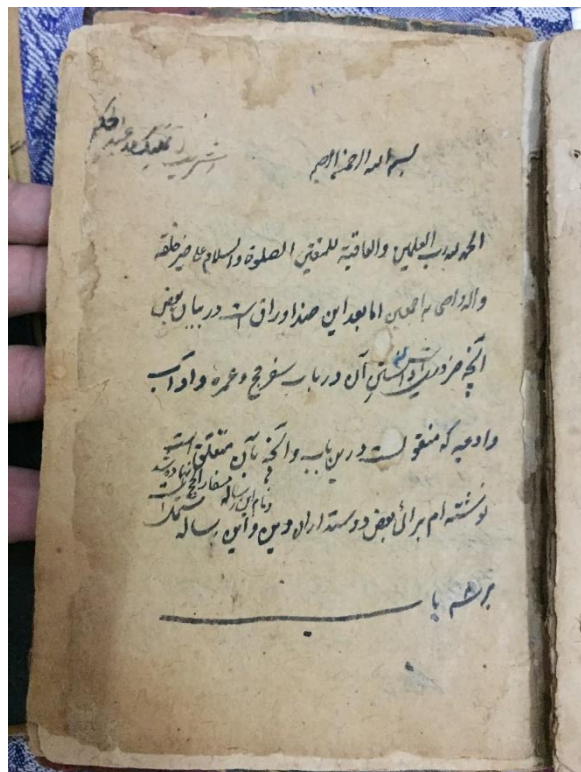 بسم الله الرحمن الرحیم
الحمد لله رب العلمین والعاقبة للمتقین الصلوة والسلام علی خیر خلقه
واله واصحابه اجمعین اما بعد این چند اوراق است در بیان بعض
آنچه ضروری است دانستن آن در باب سفر حج و عمره و آداب
وادعیه که منقولست درین باب و آنچه بآن متعلق است
و نام این رساله سفار الحج نهاده شد
نوشته ام برائ بعض دوستداران دین و این رساله مشتمل است
بر هشت باب